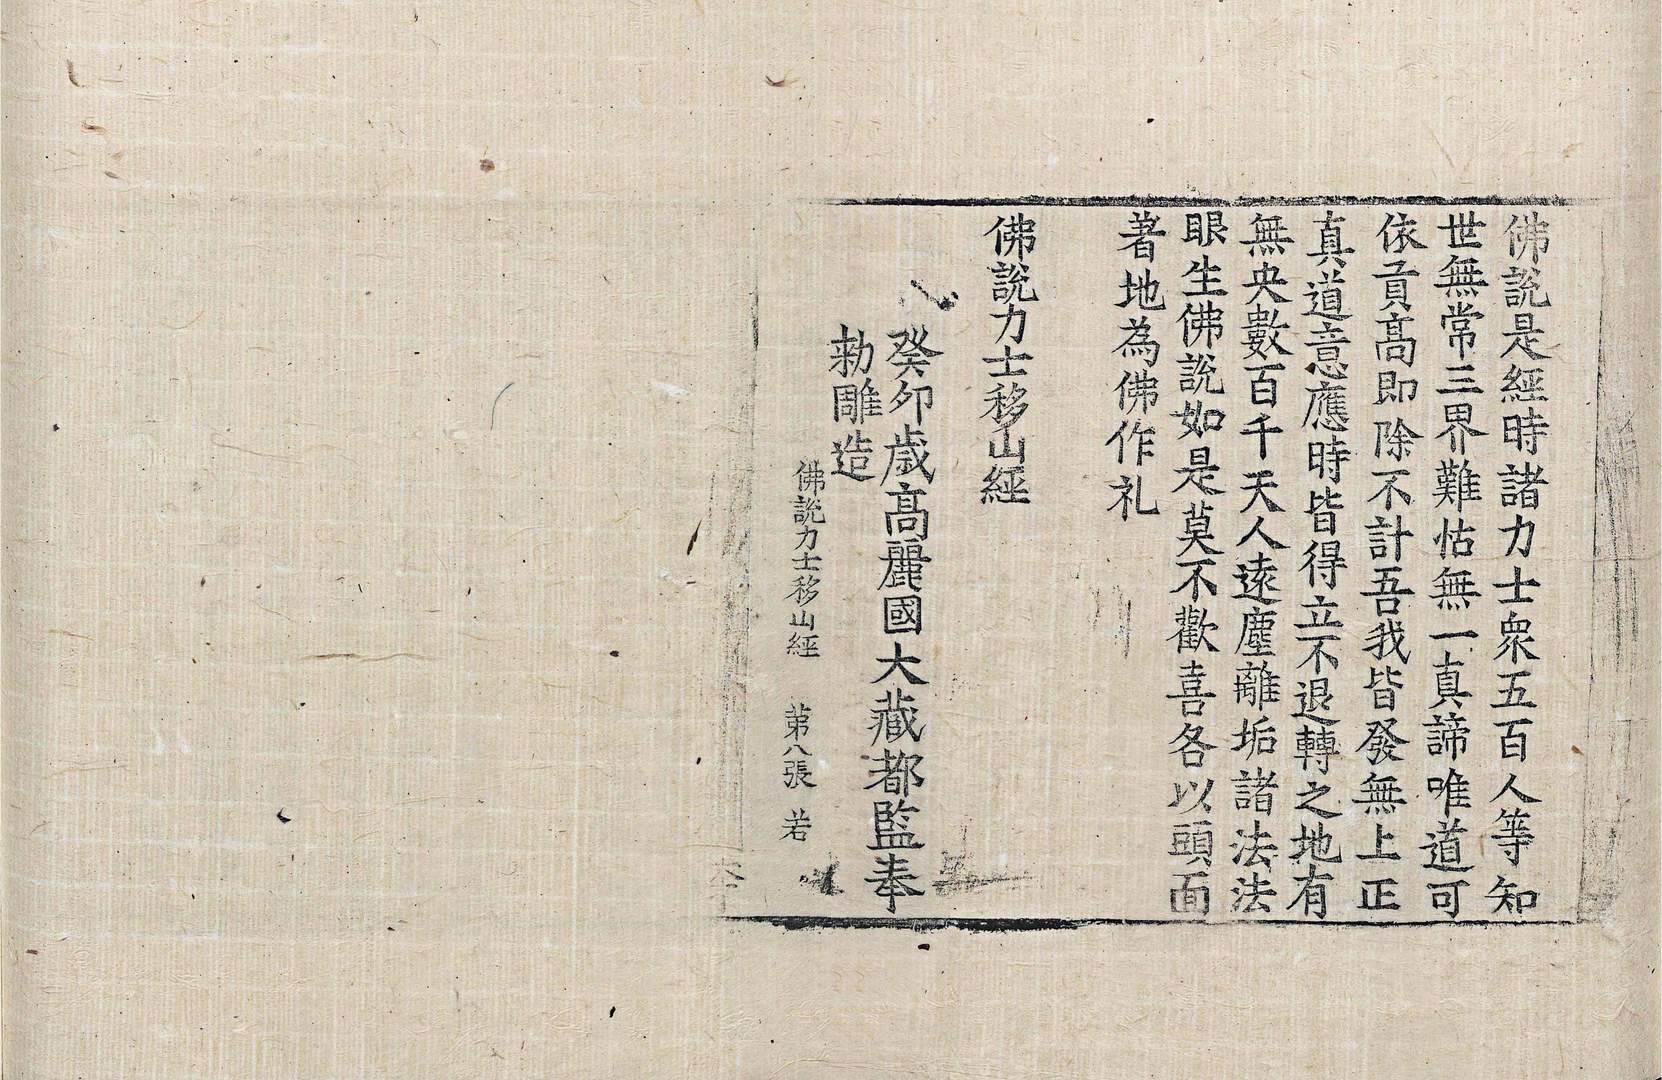 佛說是經時諸力士衆五百人等知
世無常三界難怙無一真諦唯道可
依貢髙即除不計吾我皆發無上正
真道意應時皆得立不退轉之地有
無央數百千天人遠塵離垢諸法法
眼生佛說如是莫不歡喜各以頭面
著地為佛作礼
佛說力士移山經
癸卯歲髙麗國大藏都監奉
勑雕造
佛說力士移山經 第八張 若